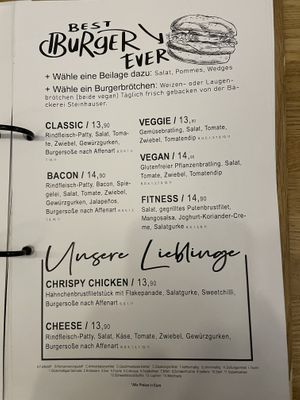 BEST
BURGER
EVER
+ Wähle eine Beilage dazu: Salat, Pommes, Wedges
+ Wähle ein Burgerbrötchen: Weizen- oder Laugen-
brötchen (beide vegan) Täglich frisch gebacken von der Bä-
ckerei Steinhauser.
CLASSIC / 13,90
Rindfleisch-Patty, Salat, Toma-
te, Zwiebel, Gewürzgurken,
Burgersoße nach Affenart
BACON / 14,90
Rindfleisch-Patty, Bacon, Spie-
gelei, Salat, Tomate, Zwiebel,
Gewürzgurken, Jalapeños,
Burgersoße nach Affenart
VEGGIE / 13,90
Gemüsebratling, Salat, Tomate,
Zwiebel, Tomatendip
VEGAN / 14,
Glutenfreier Pflanzenbratling, Salat,
Tomate, Zwiebel, Tomatendip
FITNESS / 14,90
Salat, gegrilltes Putenbrustfilet,
Mangosalsa, Joghurt-Koriander-Cre-
me, Salatgurke
Unsere Lieblinge
CHRISPY CHICKEN / 13,90
Hähnchenbrustfiletstück mit Flakepanade, Salatgurke, Sweetchilli,
Burgersoße nach Affenart
CHEESE / 13,90
Rindfleisch-Patty, Salat, Käse, Tomate, Zwiebel, Gewürzgurken,
Burgersoße nach Affenart
*Alle Preise in Euro